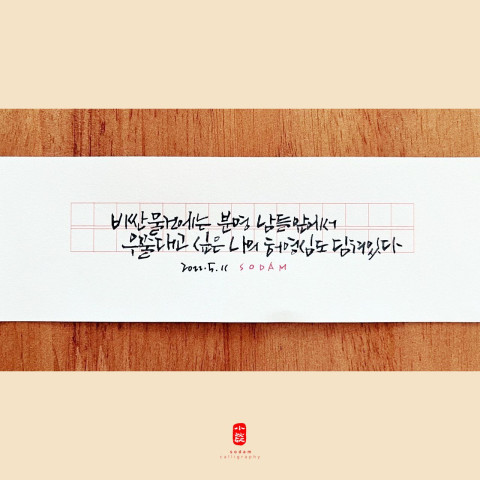 비싼 물건에는 분명 남들앞에서
우쭐대고 싶은 나의 허영심도 담겨있다
2022.5.11 SODAM
sodam
calligraphy